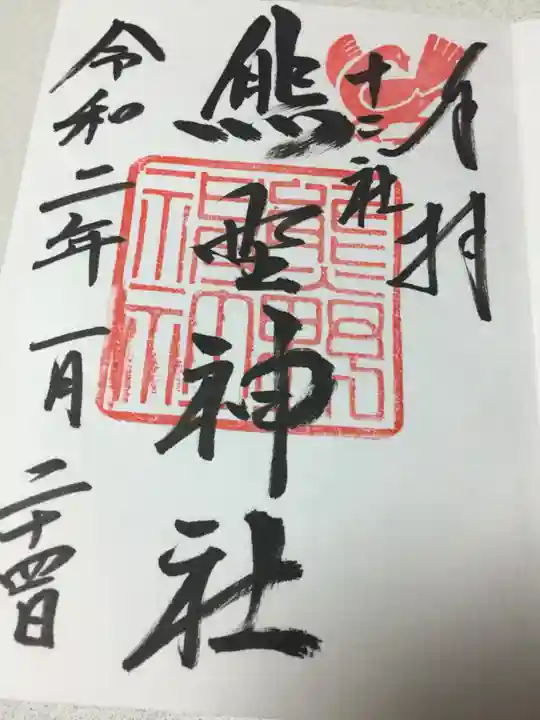 奉拝
十二社
熊野神社
令和二年一月二十四日
熊野神社